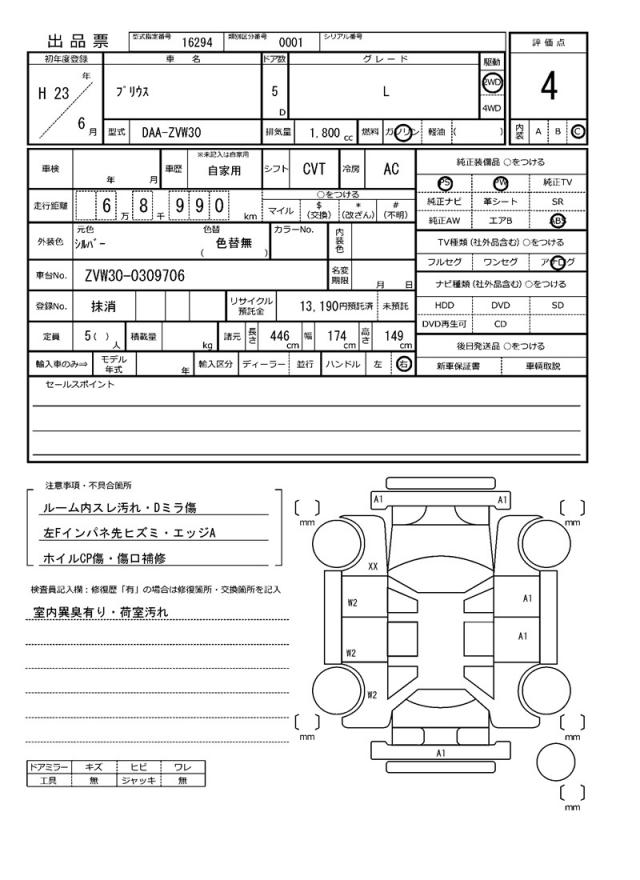 出品票 型式指定番号 16294 類別区分番号 0001 シリアル番号
評価点
初年度登録 車名 ドア数 グレード 駆動
H 23 年 ﾌﾟﾘｳｽ 5 D L 2WD 4WD 4
6 月 型式 DAA-ZVW30 排気量 1,800 cc 燃料 ガソリン 軽油 ( ) 内装 A B C
車検 年 月 車歴 ※未記入は自家用 自家用 シフト CVT 冷房 AC
純正装備品 ○をつける
PS PW 純正TV
走行距離 6 万 8 千 9 9 0 km ○をつける
マイル $(交換) *(改ざん) #(不明)
純正ナビ 革シート SR
純正AW エアB ABS
外装色 元色 ｼﾙﾊﾞｰ 色替 ( 色替無 ) カラーNo. 内装色
TV種類 (社外品含む) ○をつける
フルセグ ワンセグ アナログ
車台No. ZVW30-0309706 名変期限 月 日
ナビ種類 (社外品含む) ○をつける
登録No. 抹消 リサイクル預託金 13,190円預託済 未預託
HDD DVD SD
DVD再生可 CD
定員 5( ) 人 積載量 kg 諸元 長さ 446 cm 幅 174 cm 高さ 149 cm
後日発送品 ○をつける
輸入車のみ⇒ モデル年式 年 輸入区分 ディーラー 並行 ハンドル 左 右
新車保証書 車輌取説
セールスポイント
注意事項・不具合箇所
ルーム内スレ汚れ・Dミラ傷
左Fインパネ先ヒズミ・エッジA
ホイルCP傷・傷口補修
検査員記入欄：修復歴「有」の場合は修復箇所・交換箇所を記入
室内異臭有り・荷室汚れ
A1 A1
mm mm
XX
W2 A1
W2 A1
W2
mm mm
A1
mm
ドアミラー キズ ヒビ ワレ
工具 無 ジャッキ 無